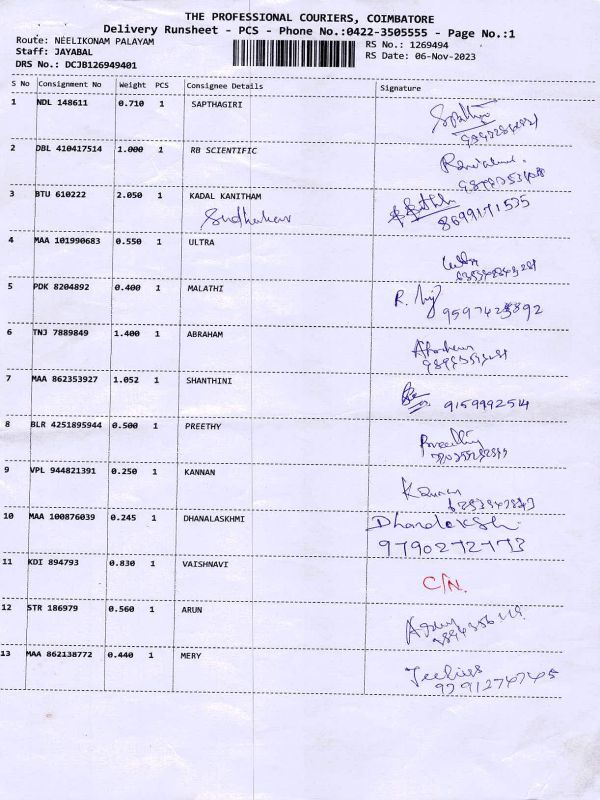 THE PROFESSIONAL COURIERS, COIMBATORE
Delivery Runsheet - PCS - Phone No.:0422-3505555 - Page No.:1
Route: NEELIKONAM PALAYAM
Staff: JAYABAL
DRS No.: DCJB126949401
RS No.: 1269494
RS Date: 06-Nov-2023
S No Consignment No Weight PCS Consignee Details Signature
1 NDL 148611 0.710 1 SAPTHAGIRI
2 DBL 410417514 1.000 1 RB SCIENTIFIC
3 BTU 610222 2.050 1 KADAL KANITHAM
Sudhakar
8699171535
4 MAA 101990683 0.550 1 ULTRA
5 PDK 8204892 0.400 1 MALATHI
R.
6 TNJ 7889849 1.400 1 ABRAHAM
7 MAA 862353927 1.052 1 SHANTHINI
9159992514
8 BLR 4251895944 0.500 1 PREETHY
Preethy
9 VPL 944821391 0.250 1 KANNAN
10 MAA 100876039 0.245 1 DHANALASKHMI
9790272773
11 KDI 894793 0.830 1 VAISHNAVI
C/N.
12 STR 186979 0.560 1 ARUN
13 MAA 862138772 0.440 1 MERY